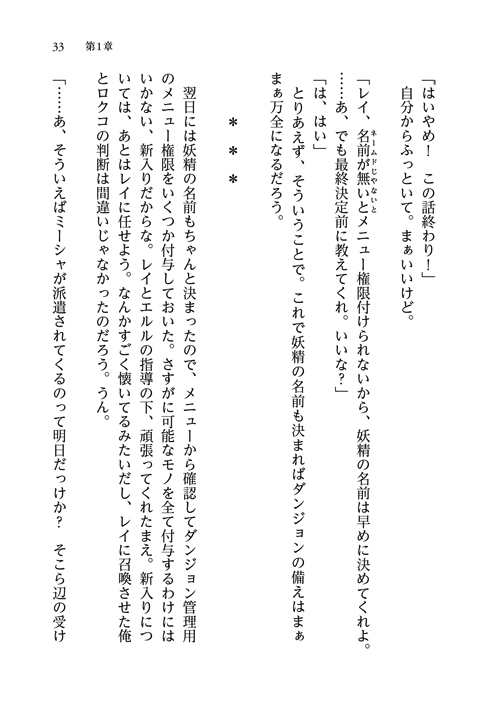 33　第1章
「はいやめ！　この話終わり！」
自分からふっといて。まぁいいけど。
「レイ、名前が無いとメニュー権限付けられないから、妖精の名前は早めに決めてくれよ。
ネームドじゃないと
……あ、でも最終決定前に教えてくれ。いいな？」
「は、はい」
とりあえず、そういうことで。これで妖精の名前も決まればダンジョンの備えはまぁ
まぁ万全になるだろう。
＊　＊　＊
翌日には妖精の名前もちゃんと決まったので、メニューから確認してダンジョン管理用
のメニュー権限をいくつか付与しておいた。さすがに可能なモノを全て付与するわけには
いかない、新入りだからな。レイとエルルの指導の下、頑張ってくれたまえ。新入りにつ
いては、あとはレイに任せよう。なんかすごく懐いてるみたいだし、レイに召喚させた俺
とロクコの判断は間違いじゃなかったのだろう。うん。
「……あ、そういえばミーシャが派遣されてくるのって明日だっけか？　そこら辺の受け